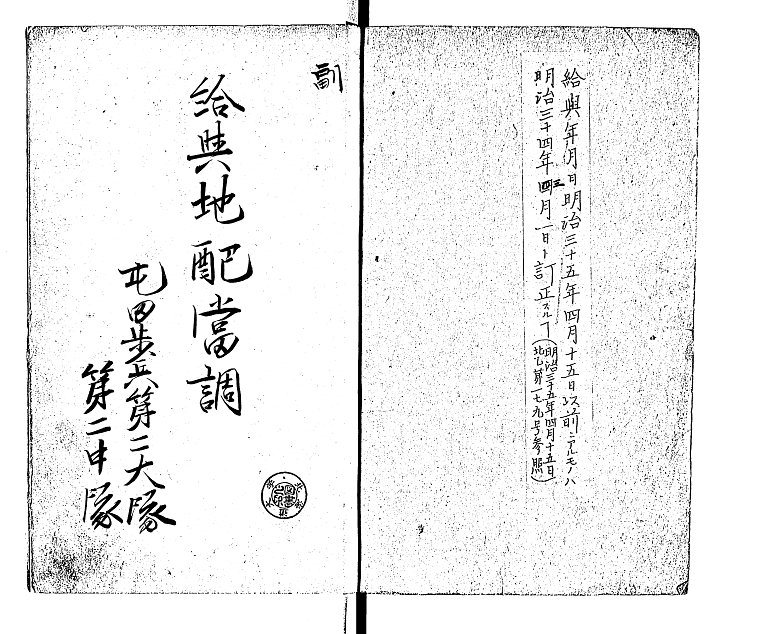 給與年月日明治三十五年四月十五日以前ニアルモノハ
明治三十四年四三月一日ト訂正スル丁
(明治三十五年四月十五日
北乙第一七九号参照)
副
給與地配當調
屯田歩兵第二大隊
第二中隊